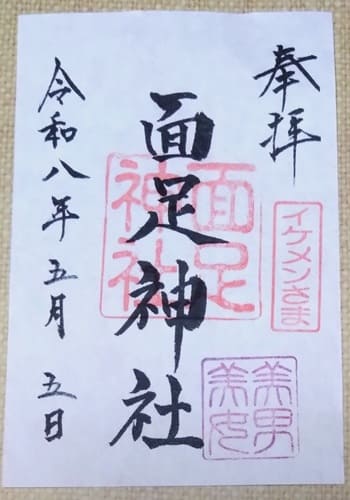 奉拝
イケメンさま
美男
美女
面足神社
面足
神社
令和八年五月五日